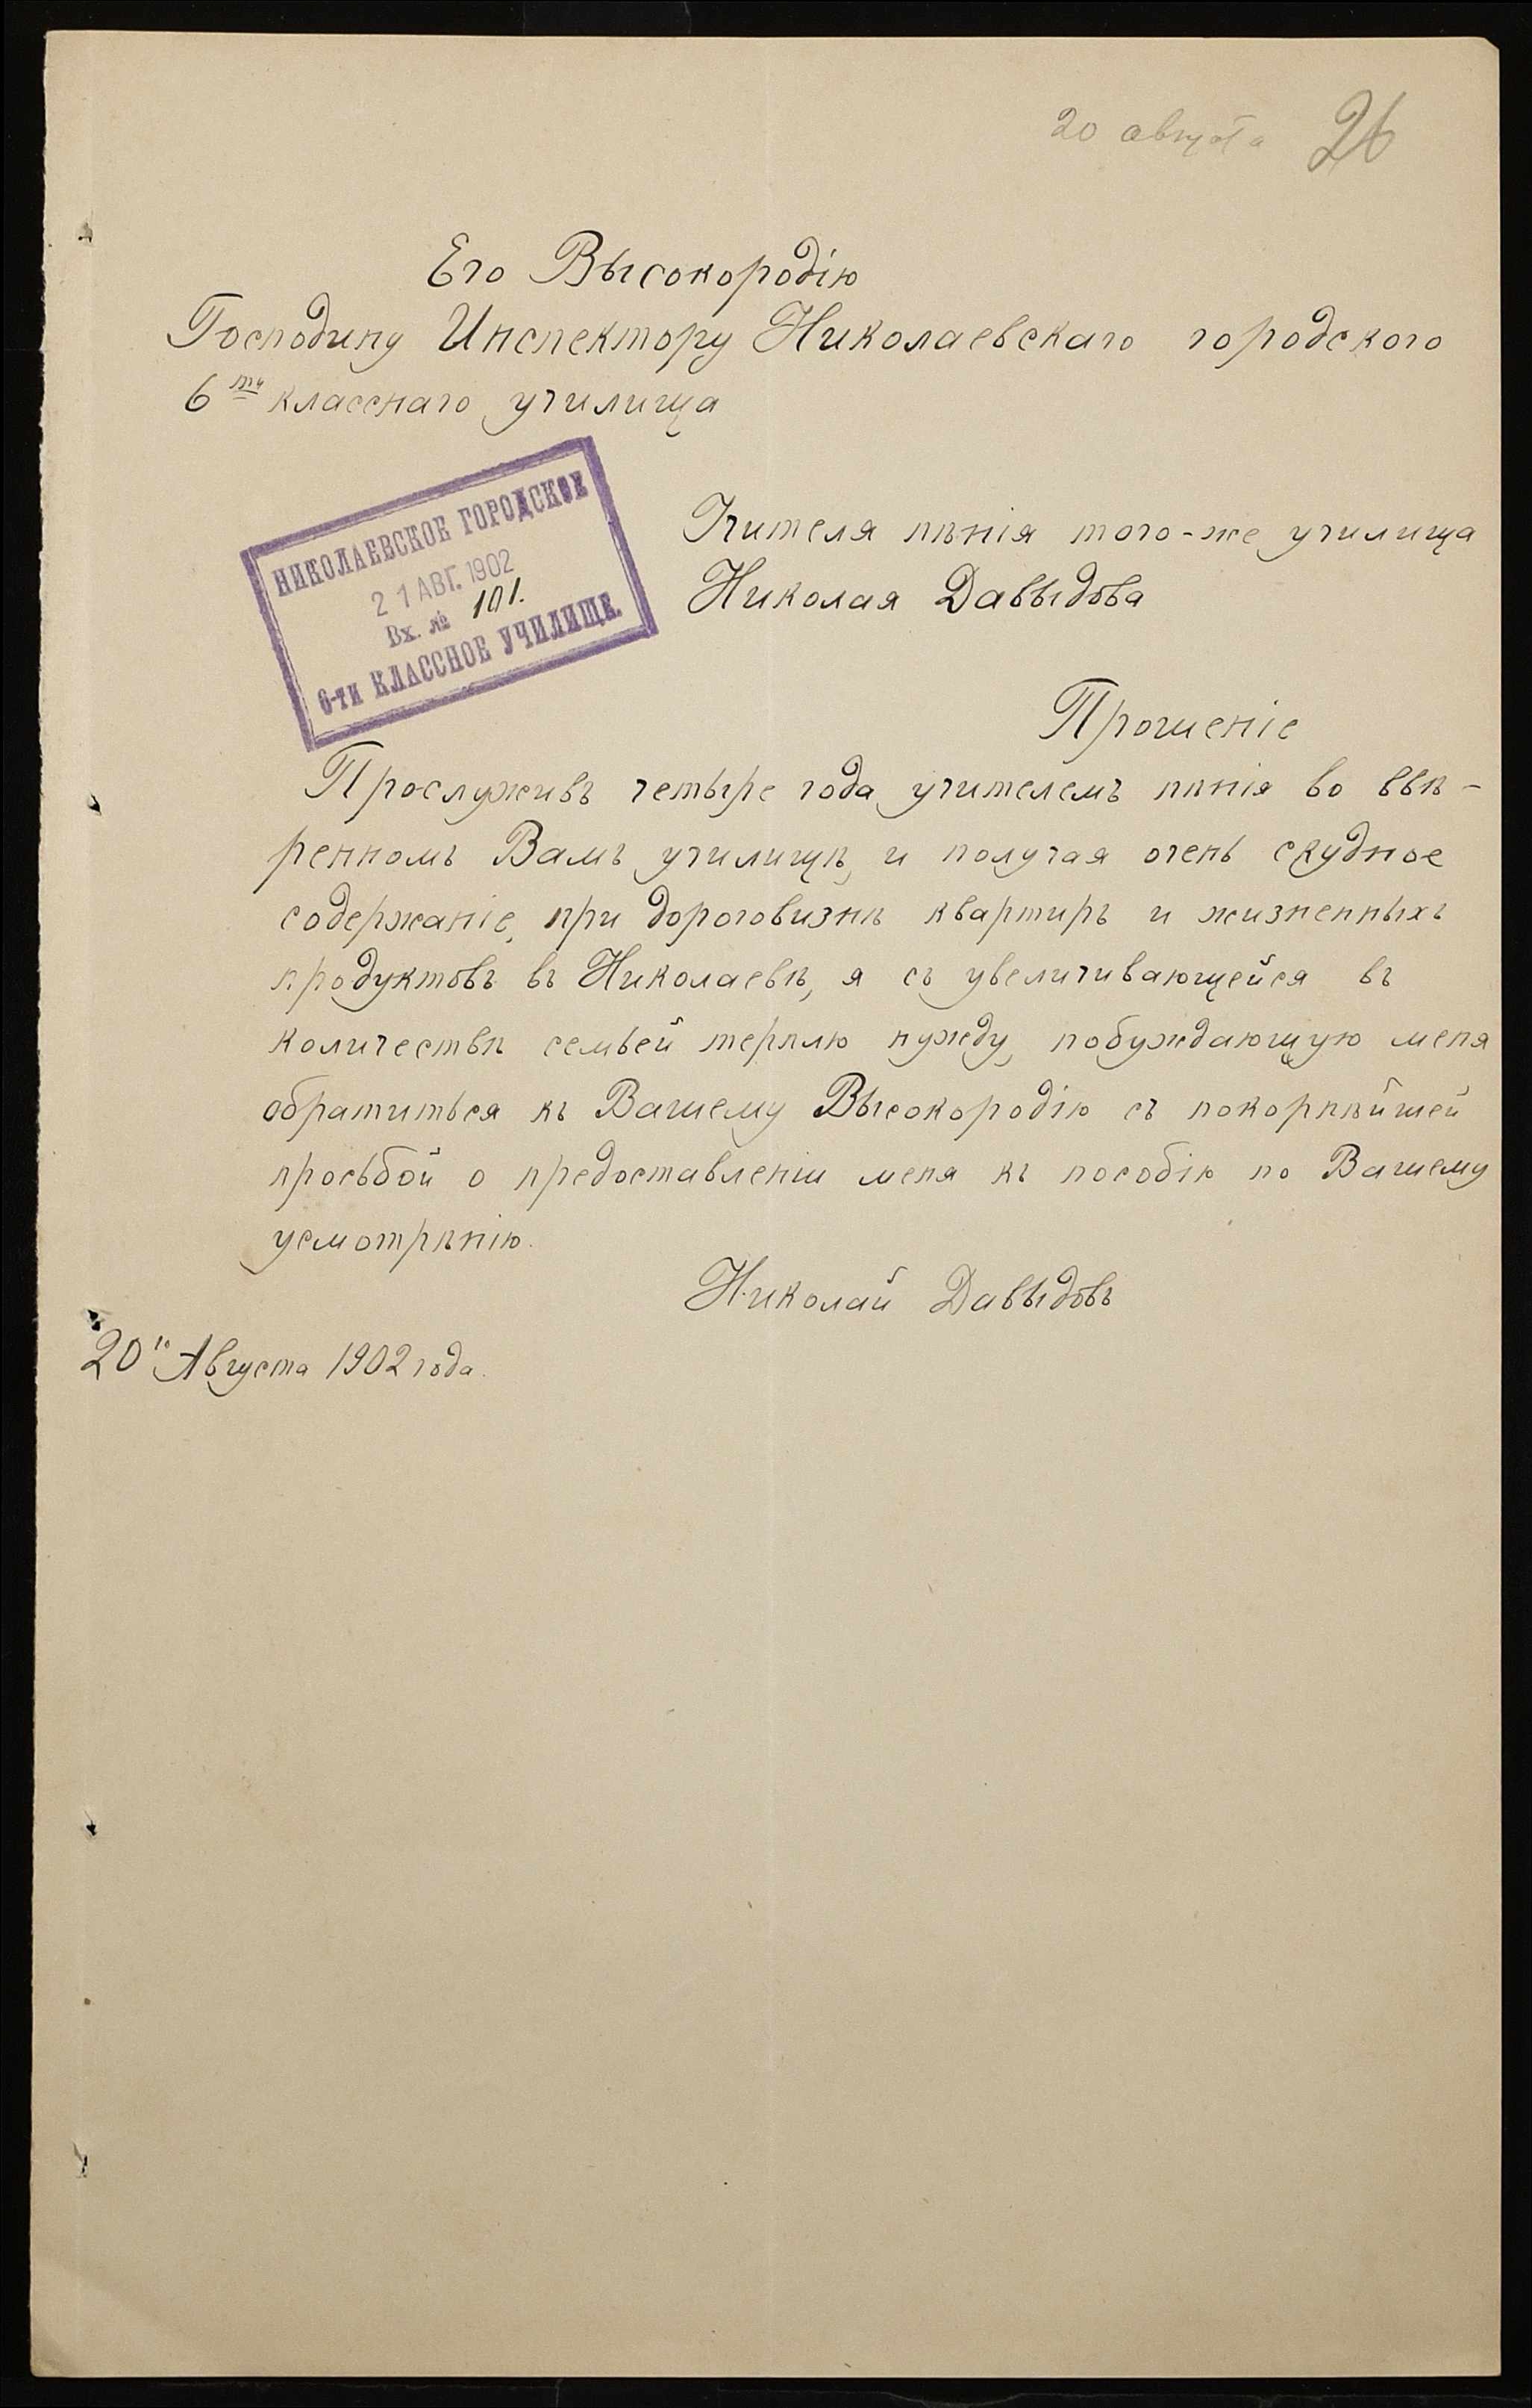 20 августа 26
Его Высокородію
Господину Инспектору Николаевскаго городского
6ти класснаго училища
НИКОЛАЕВСКОЕ ГОРОДСКОЕ
21 АВГ. 1902
Вх. № 101.
6-ти КЛАССНОЕ УЧИЛИЩЕ.
Учителя пѣнія того-же училища
Николая Давыдова
Прошеніе
Прослуживъ четыре года учителемъ пѣнія во ввѣ-
ренномъ Вамъ училищѣ, и получая очень скудное
содержаніе, при дороговизнѣ квартиръ и жизненныхъ
продуктовъ въ Николаевѣ, я съ увеличивающейся въ
количествѣ семьей терплю нужду, побуждающую меня
обратиться къ Вашему Высокородію съ покорнѣйшей
просьбой о предоставленіи меня къ пособію по Вашему
усмотрѣнію.
Николай Давыдовъ
20го Августа 1902 года.